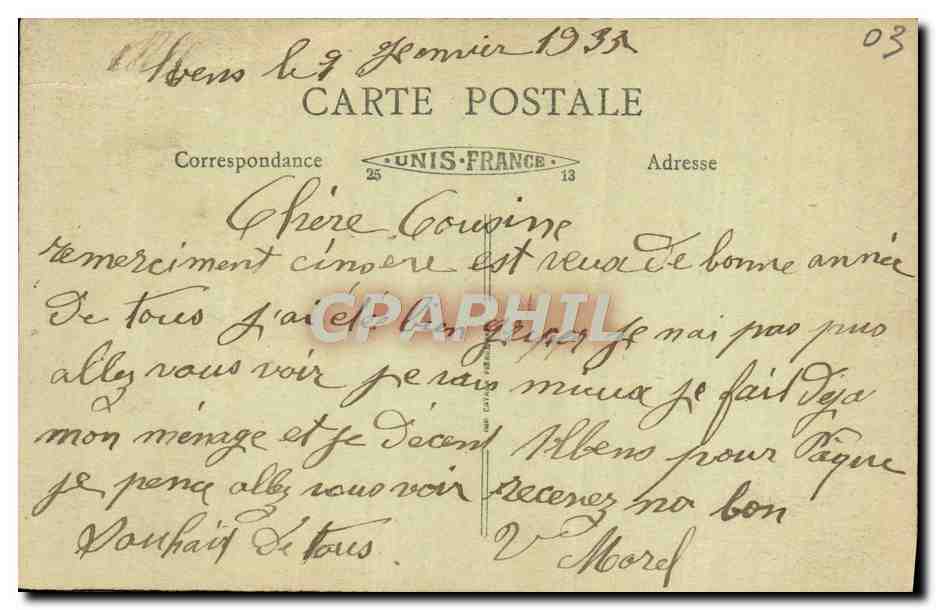 Albens le 9 Janvier 1933
03
CARTE POSTALE
Correspondance
UNIS-FRANCE
25 13
Adresse
Chère Cousine
remerciment cincere est veux de bonne année
de tous j'ai été bien je nai pas pus
allez vous voir je vais mieux je fait deja
mon ménage et je décent Albens pour Paque
je pence allez vous voir recevez no bon
Souhait de tous.
Ve Morel
CPAPHIL